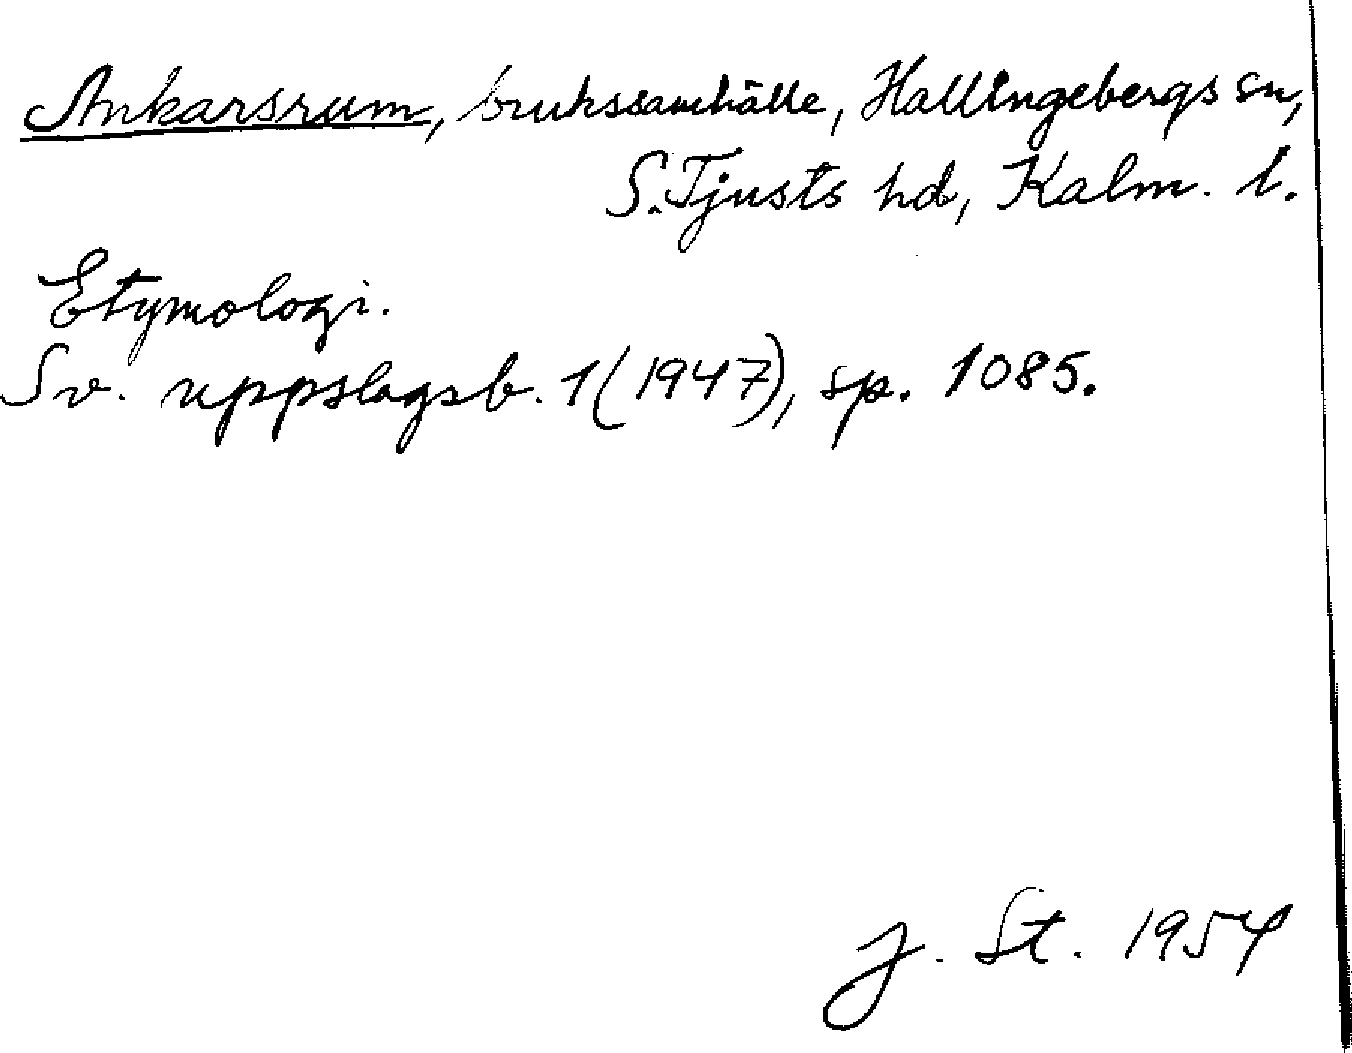 Ankarsrum, brukssamhälle, Hallingebergs sn,
S. Tjusts hd, Kalm. l.
Etymologi.
Sv. uppslagsb. 1 (1947), sp. 1085.
J. St. 1954